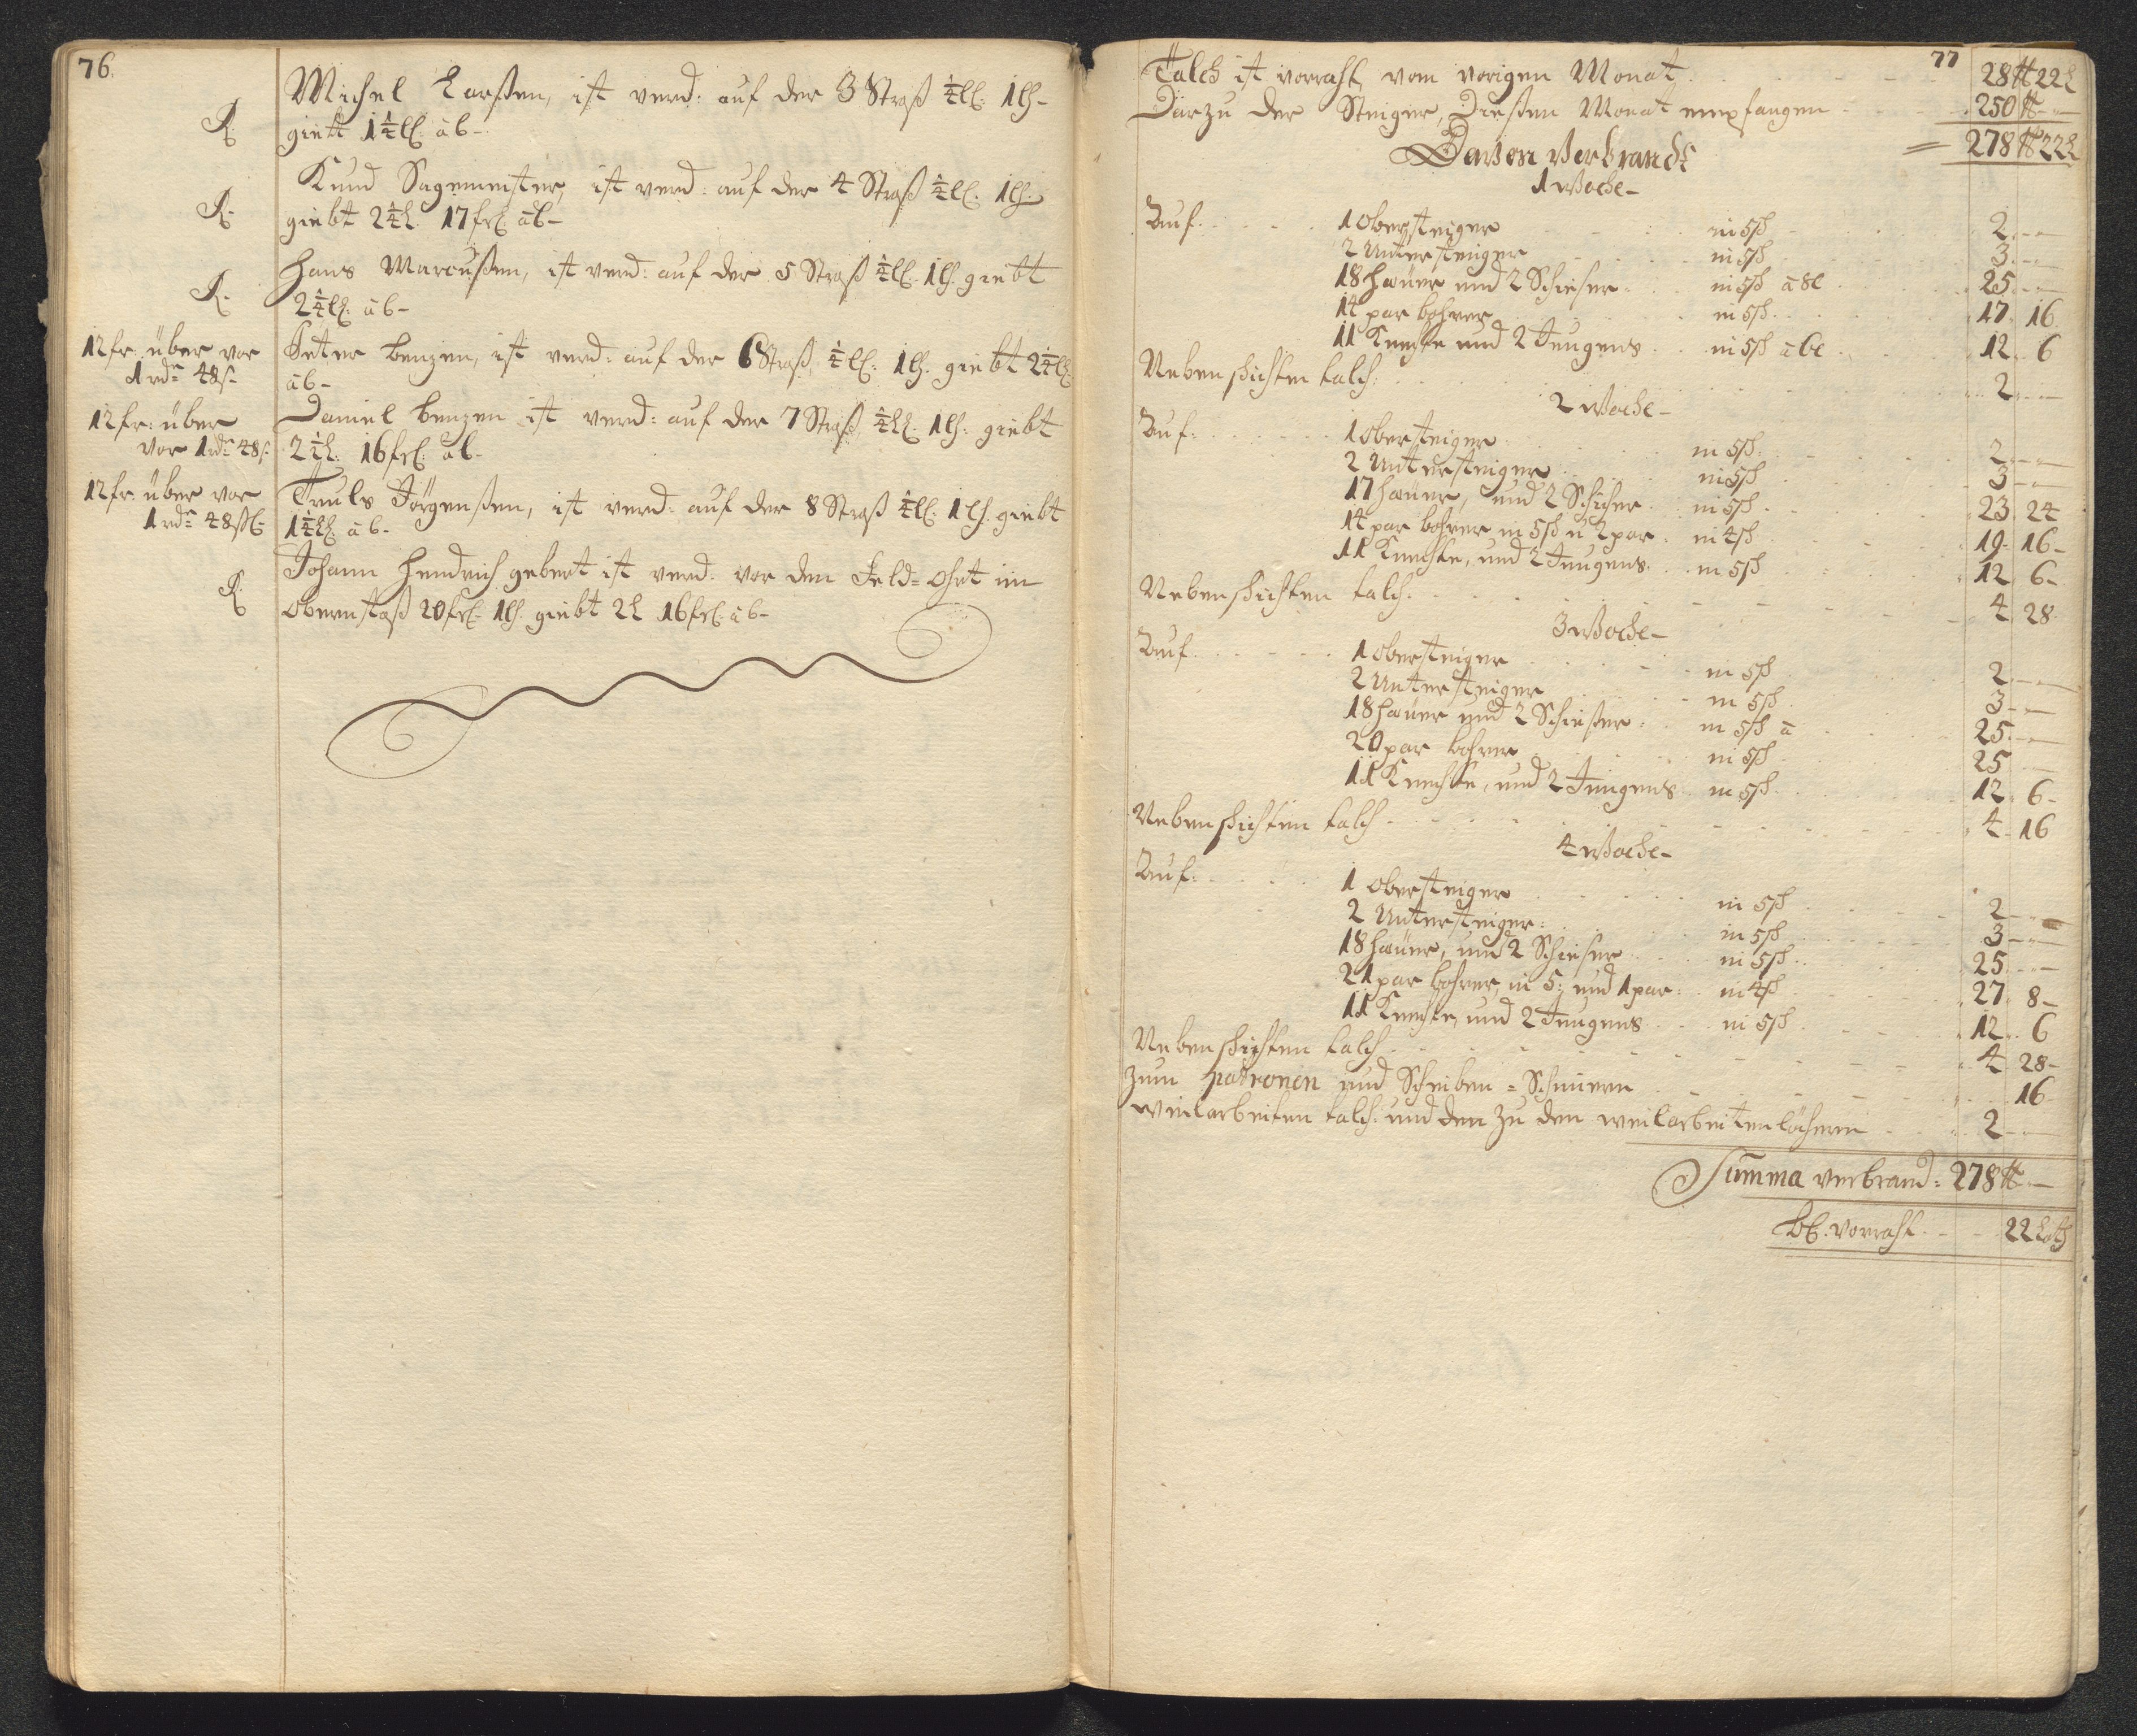 76.
Michel Larßen, ist verd: auf der 3 Straß ¼ Ll: 1 lh-
R:
giett 1¼ Ll: ab-
Knud Sagemeister, ist verd: auf der 4 Straß ¼ Ll. 1 lh.
R:
giebt 2¼ L. 17 frl: ab-
Hans Marcußen, ist verd: auf der 5 Straß ¼ Ll. 1 lh. giebt
R:
2¼ Ll: ab-
12 fr: über vor
1 rdr 48 s.
Peter benzen, ist verd: auf der 6 Straß ¼ Ll: 1 lh. giebt 2¼ Ll:
ab-
12 fr: über
vor 1 rdr 48 s.
Daniel benzen ist verd: auf der 7 Straß ¼ Ll: 1 lh: giebt
2¼ L: 16 frl: ab-
12 fr: über vor
1 rdr 48 ßl:
Truls Jörgenßen, ist verd: auf der 8 Straß ¼ Ll: 1 lh. giebt
1¼ Ll: ab-
Johann Hendrich gebert ist verd: vor den Feld=Ohrt im
R:
obernstoß 20 frl: 1 lh. giebt 2 L 16 frl: ab-
77
Talch ist vorraht vom vorigen Monat. 28 ℔ 22 L
Darzu der Steiger, Dießen Monat empfangen 250 ℔ -
= 278 ℔ 22 L
Davon Verbrandt
1 Woche-
Auf. 1 Obersteiger in 5 sch 2 -
2 Untersteiger in 5 sch 3 -
18 Haüer und 2 Schieser in 5 sch a 8 l 25 -
14 par bohrer in 5 sch 17. 16
11 Knechte und 2 Jungens in 5 sch a 6 l 12. 6
Nebenschichten talch: 2 -
2 Woche-
Auf: 1 Obersteiger in 5 sch: 2 -
2 Untersteiger in 5 sch 3 -
17 Haüer, und 2 Schieser in 5 sch 23. 24
14 par bohrer in 5 sch u 2 par in 4 sch 19. 16-
11 Knechte, und 2 Jungens in 5 sch 12. 6-
Nebenschichten talch. 4 28
3 Woche-
Auf. 1 Obersteiger in 5 sch 2 -
2 Untersteiger in 5 sch 3 -
18 Haüer und 2 Schießer in 5 sch a 25 -
20 par bohrer in 5 sch 25 -
11 Knechte, und 2 Jungens in 5 sch 12. 6-
Nebenschichten talch 4. 16
4 Woche-
Auf: 1 Obersteiger in 5 sch 2 -
2 Untersteiger: in 5 sch 3 -
18 Haüer, und 2 Schieser in 5 sch 25 -
21 par bohrer, in 5: und 1 par in 4 sch 27. 8-
11 Knechte, und 2 Jungens in 5 sch 12. 6
Nebenschichten talch 4 28-
Zum patronen und Scheiben = Schmieren 16-
weilarbeiten talch: und den zu den weilarbeiten löchern 2 -
Summa verbrand: 278 ℔ -
bl. vorraht 22 Loth